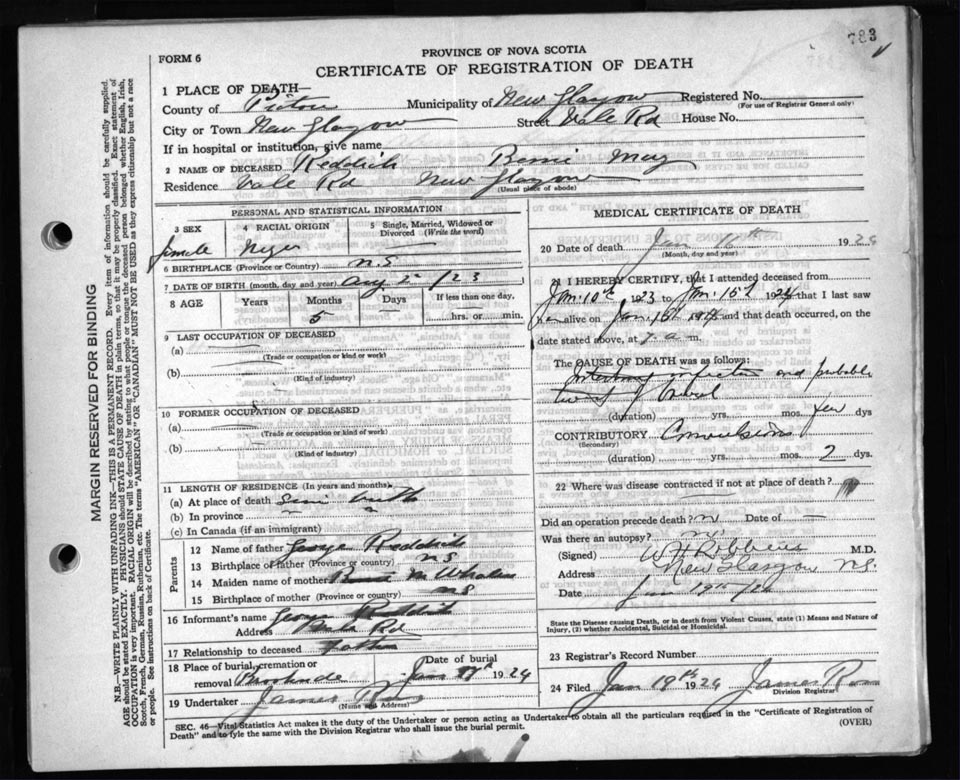 783
PROVINCE OF NOVA SCOTIA
FORM 6
CERTIFICATE OF REGISTRATION OF DEATH
1 PLACE OF DEATH—
County of Pictou Municipality of New Glasgow Registered No.
(For use of Registrar General only)
City or Town New Glasgow Street Vale Rd House No.
If in hospital or institution, give name
2 NAME OF DECEASED Reddick Bessie May
Residence Vale Rd New Glasgow
(Usual place of abode)
PERSONAL AND STATISTICAL INFORMATION
3 SEX 4 RACIAL ORIGIN 5 Single, Married, Widowed or Divorced (Write the word)
female Negro
6 BIRTHPLACE (Province or Country) N.S
7 DATE OF BIRTH (month, day and year) Aug 2 /23
8 AGE Years Months Days If less than one day,
5 hrs. or min.
9 LAST OCCUPATION OF DECEASED
(a)
(Trade or occupation or kind or work)
(b)
(Kind of industry)
10 FORMER OCCUPATION OF DECEASED
(a)
(Trade or occupation or kind or work)
(b)
(Kind of industry)
11 LENGTH OF RESIDENCE (In years and months)
(a) At place of death
(b) In province
(c) In Canada (if an immigrant)
Parents
12 Name of father George Reddick
13 Birthplace of father (Province or country) N S
14 Maiden name of mother
15 Birthplace of mother (Province or country) N S
16 Informant's name George Reddick
Address Vale Rd
17 Relationship to deceased father
18 Place of burial, cremation or removal Date of burial
Jan 1924
19 Undertaker James
(Name and Address)
MEDICAL CERTIFICATE OF DEATH
20 Date of death Jan 16th 192
(Month, day and year)
21 I HEREBY CERTIFY, that I attended deceased from
Jan. 10th 1923 to Jan. 15th 1924 that I last saw
her alive on Jan 15th 1924 and that death occurred, on
date stated above, at a m.
The CAUSE OF DEATH was as follows:
infection and probable
of bowel
(duration) yrs. mos. few dys
CONTRIBUTORY Convulsions
(Secondary)
(duration) yrs. mos. 2 dys.
22 Where was disease contracted if not at place of death?
Did an operation precede death? Date of
Was there an autopsy?
(Signed) W H Robbins M.D.
Address New Glasgow N.S.
Date Jan 19th
State the Disease causing Death, or in death from Violent Causes, state (1) Means and Nature of Injury, (2) whether Accidental, Suicidal or Homicidal.
23 Registrar's Record Number
24 Filed Jan 19th 1924 James
Division Registrar
SEC. 46—Vital Statistics Act makes it the duty of the Undertaker or person acting as Undertaker to obtain all the particulars required in the "Certificate of Registration of
Death" and to fyle the same with the Division Registrar who shall issue the burial permit.
(OVER)
MARGIN RESERVED FOR BINDING
N.B.—WRITE PLAINLY WITH UNFADING INK—THIS IS A PERMANENT RECORD. Every item of information should be carefully supplied.
AGE should be stated EXACTLY. PHYSICIANS should STATE CAUSE OF DEATH in plain terms, so that it may be properly classified. Exact statement of
OCCUPATION is very important. RACIAL ORIGIN will be described by stating to what people or tongue the deceased person belonged whether English, Irish,
Scotch, French, German, Russian, Ruthenian, etc. The terms "AMERICAN" or "CANADIAN" MUST NOT BE USED as they express citizenship but not a race
or people. See instructions on back of Certificate.